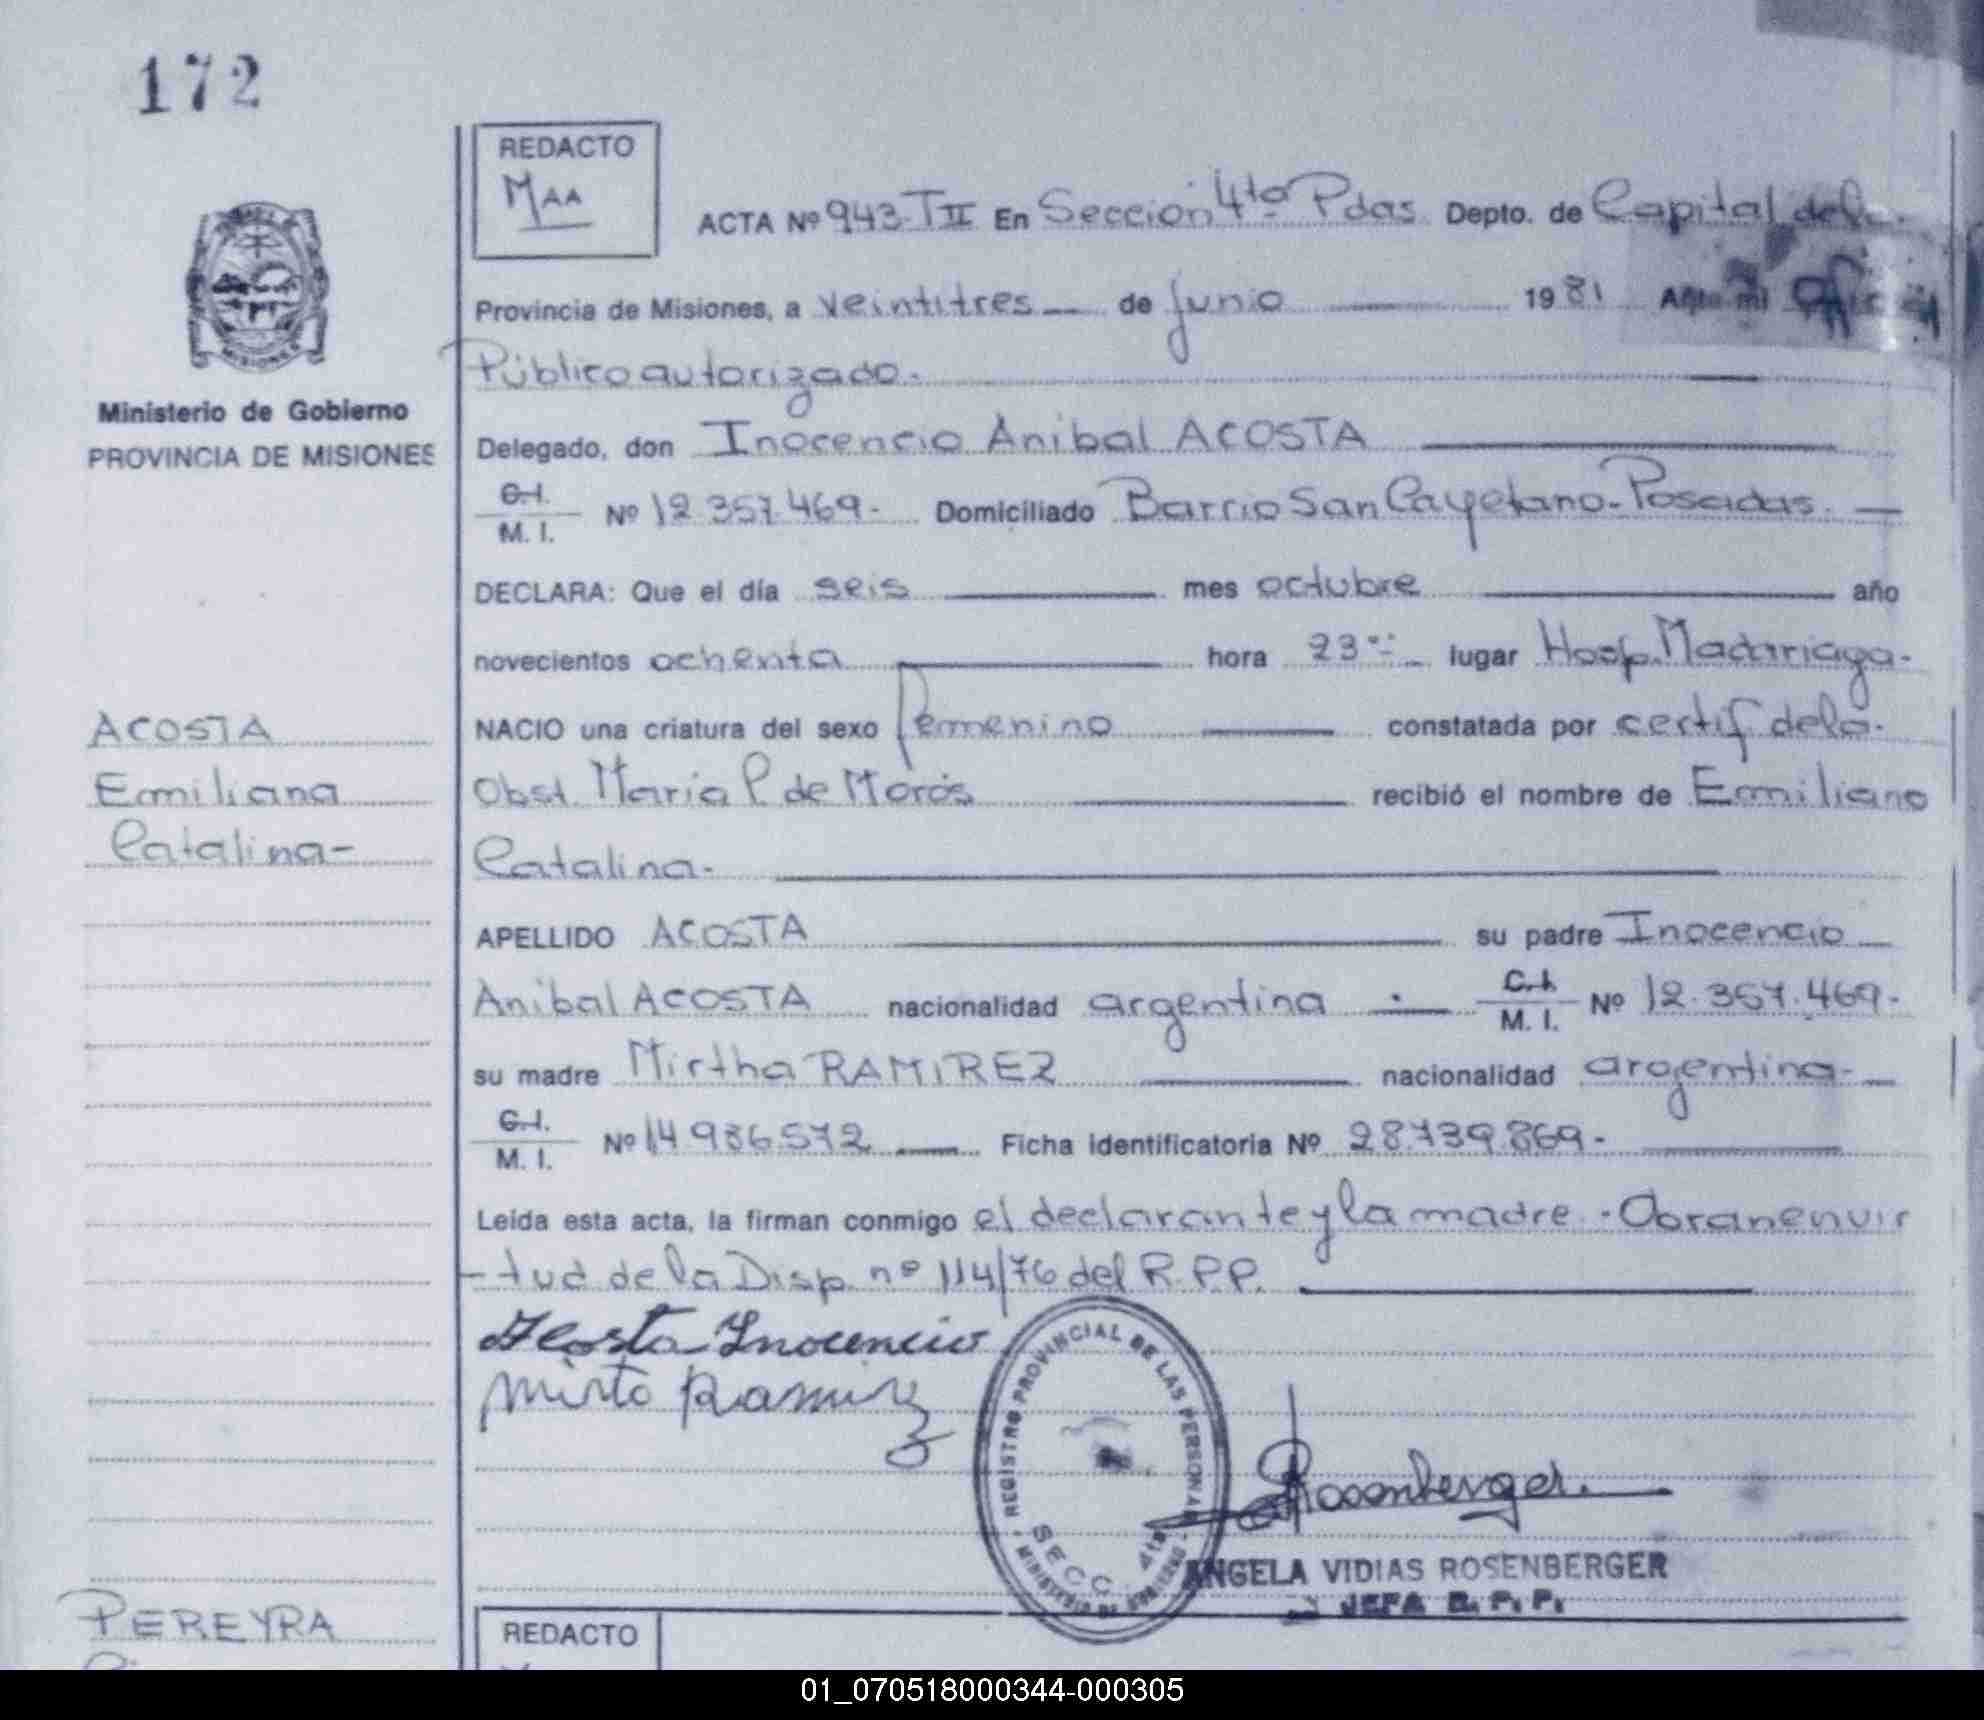 172
REDACTO
MAA
ACTA Nº 943-TII En Sección 4ta Pdas. Depto. de Capital de la
Provincia de Misiones, a veintitres de junio 1981 Ante mi Oficial
Público autorizado.
Ministerio de Gobierno
PROVINCIA DE MISIONES
Delegado, don Inocencio Anibal ACOSTA
C.I.
M. I. Nº 12.357.469.- Domiciliado Barrio San Cayetano-Posadas.
DECLARA: Que el día seis mes octubre año
novecientos ochenta hora 23 lugar Hosp. Madariaga.
NACIO una criatura del sexo femenino constatada por certif de la
Obst. María P. de Morós recibió el nombre de Emiliana
Catalina.
ACOSTA
Emiliana
Catalina-
APELLIDO ACOSTA su padre Inocencio
Anibal ACOSTA nacionalidad argentina C.I.
M. I. Nº 12.357.469.-
su madre Mirtha RAMIREZ nacionalidad argentina-
C.I.
M. I. Nº 14.986.572 Ficha identificatoria Nº 28.739.869-
Leída esta acta, la firman conmigo el declarante y la madre.-Obran en vir
-tud de la Disp. nº 114/76 del R.P.P.
Acosta Inocencio
Mirta Ramirez
REGISTRO PROVINCIAL DE LAS PERSONAS
SECC. 4ta
Rosenberger
ANGELA VIDIAS ROSENBERGER
JEFA R. P. P.
PEREYRA
REDACTO
01_070518000344-000305